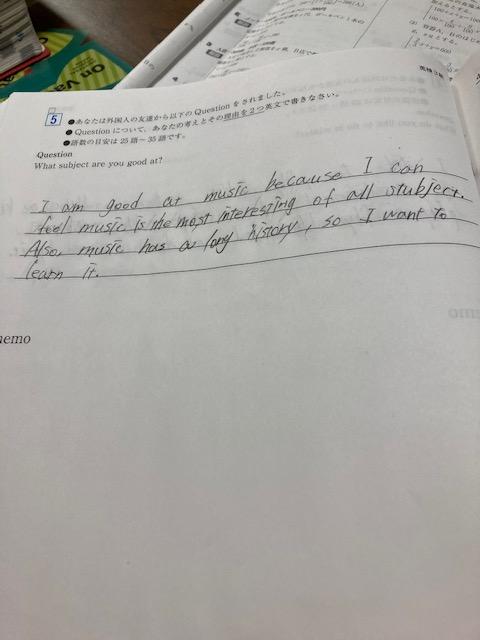 on Va
英検3級
5
●あなたは外国人の友達から以下の Question をされました。
●Question について、あなたの考えとその理由を2つ英文で書きなさい。
●語数の目安は 25 語～35 語です。
Question
What subject are you good at?
I am good at music because I can
feel music is the most interesting of all stubject.
Also, music has a long history, so I want to
learn it.
memo